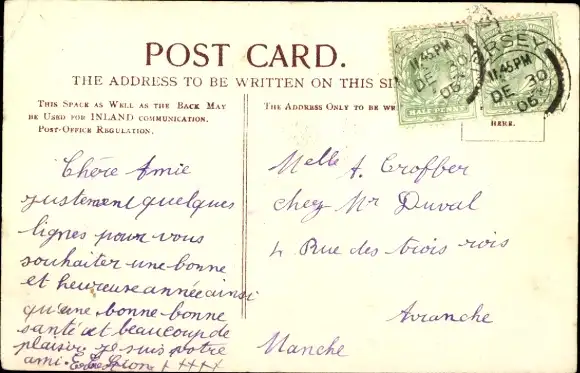 POST CARD.
THE ADDRESS TO BE WRITTEN ON THIS SI
THIS SPACE AS WELL AS THE BACK MAY
BE USED FOR INLAND COMMUNICATION.
POST-OFFICE REGULATION.
THE ADDRESS ONLY TO BE WR
HERE.
JERSEY
11.45PM
DE 30
05
HALFPENNY
JERSEY
11.45PM
DE 30
05
Chère Amie
justement quelques
lignes pour vous
souhaiter une bonne
et heureuse année ainsi
qu'une bonne bonne
santé et beaucoup de
plaisir je suis votre
ami. Lion x x x x x
Melle A. Croffer
chez Mr Duval
4 Rue des trois rois
Avranche
Manche